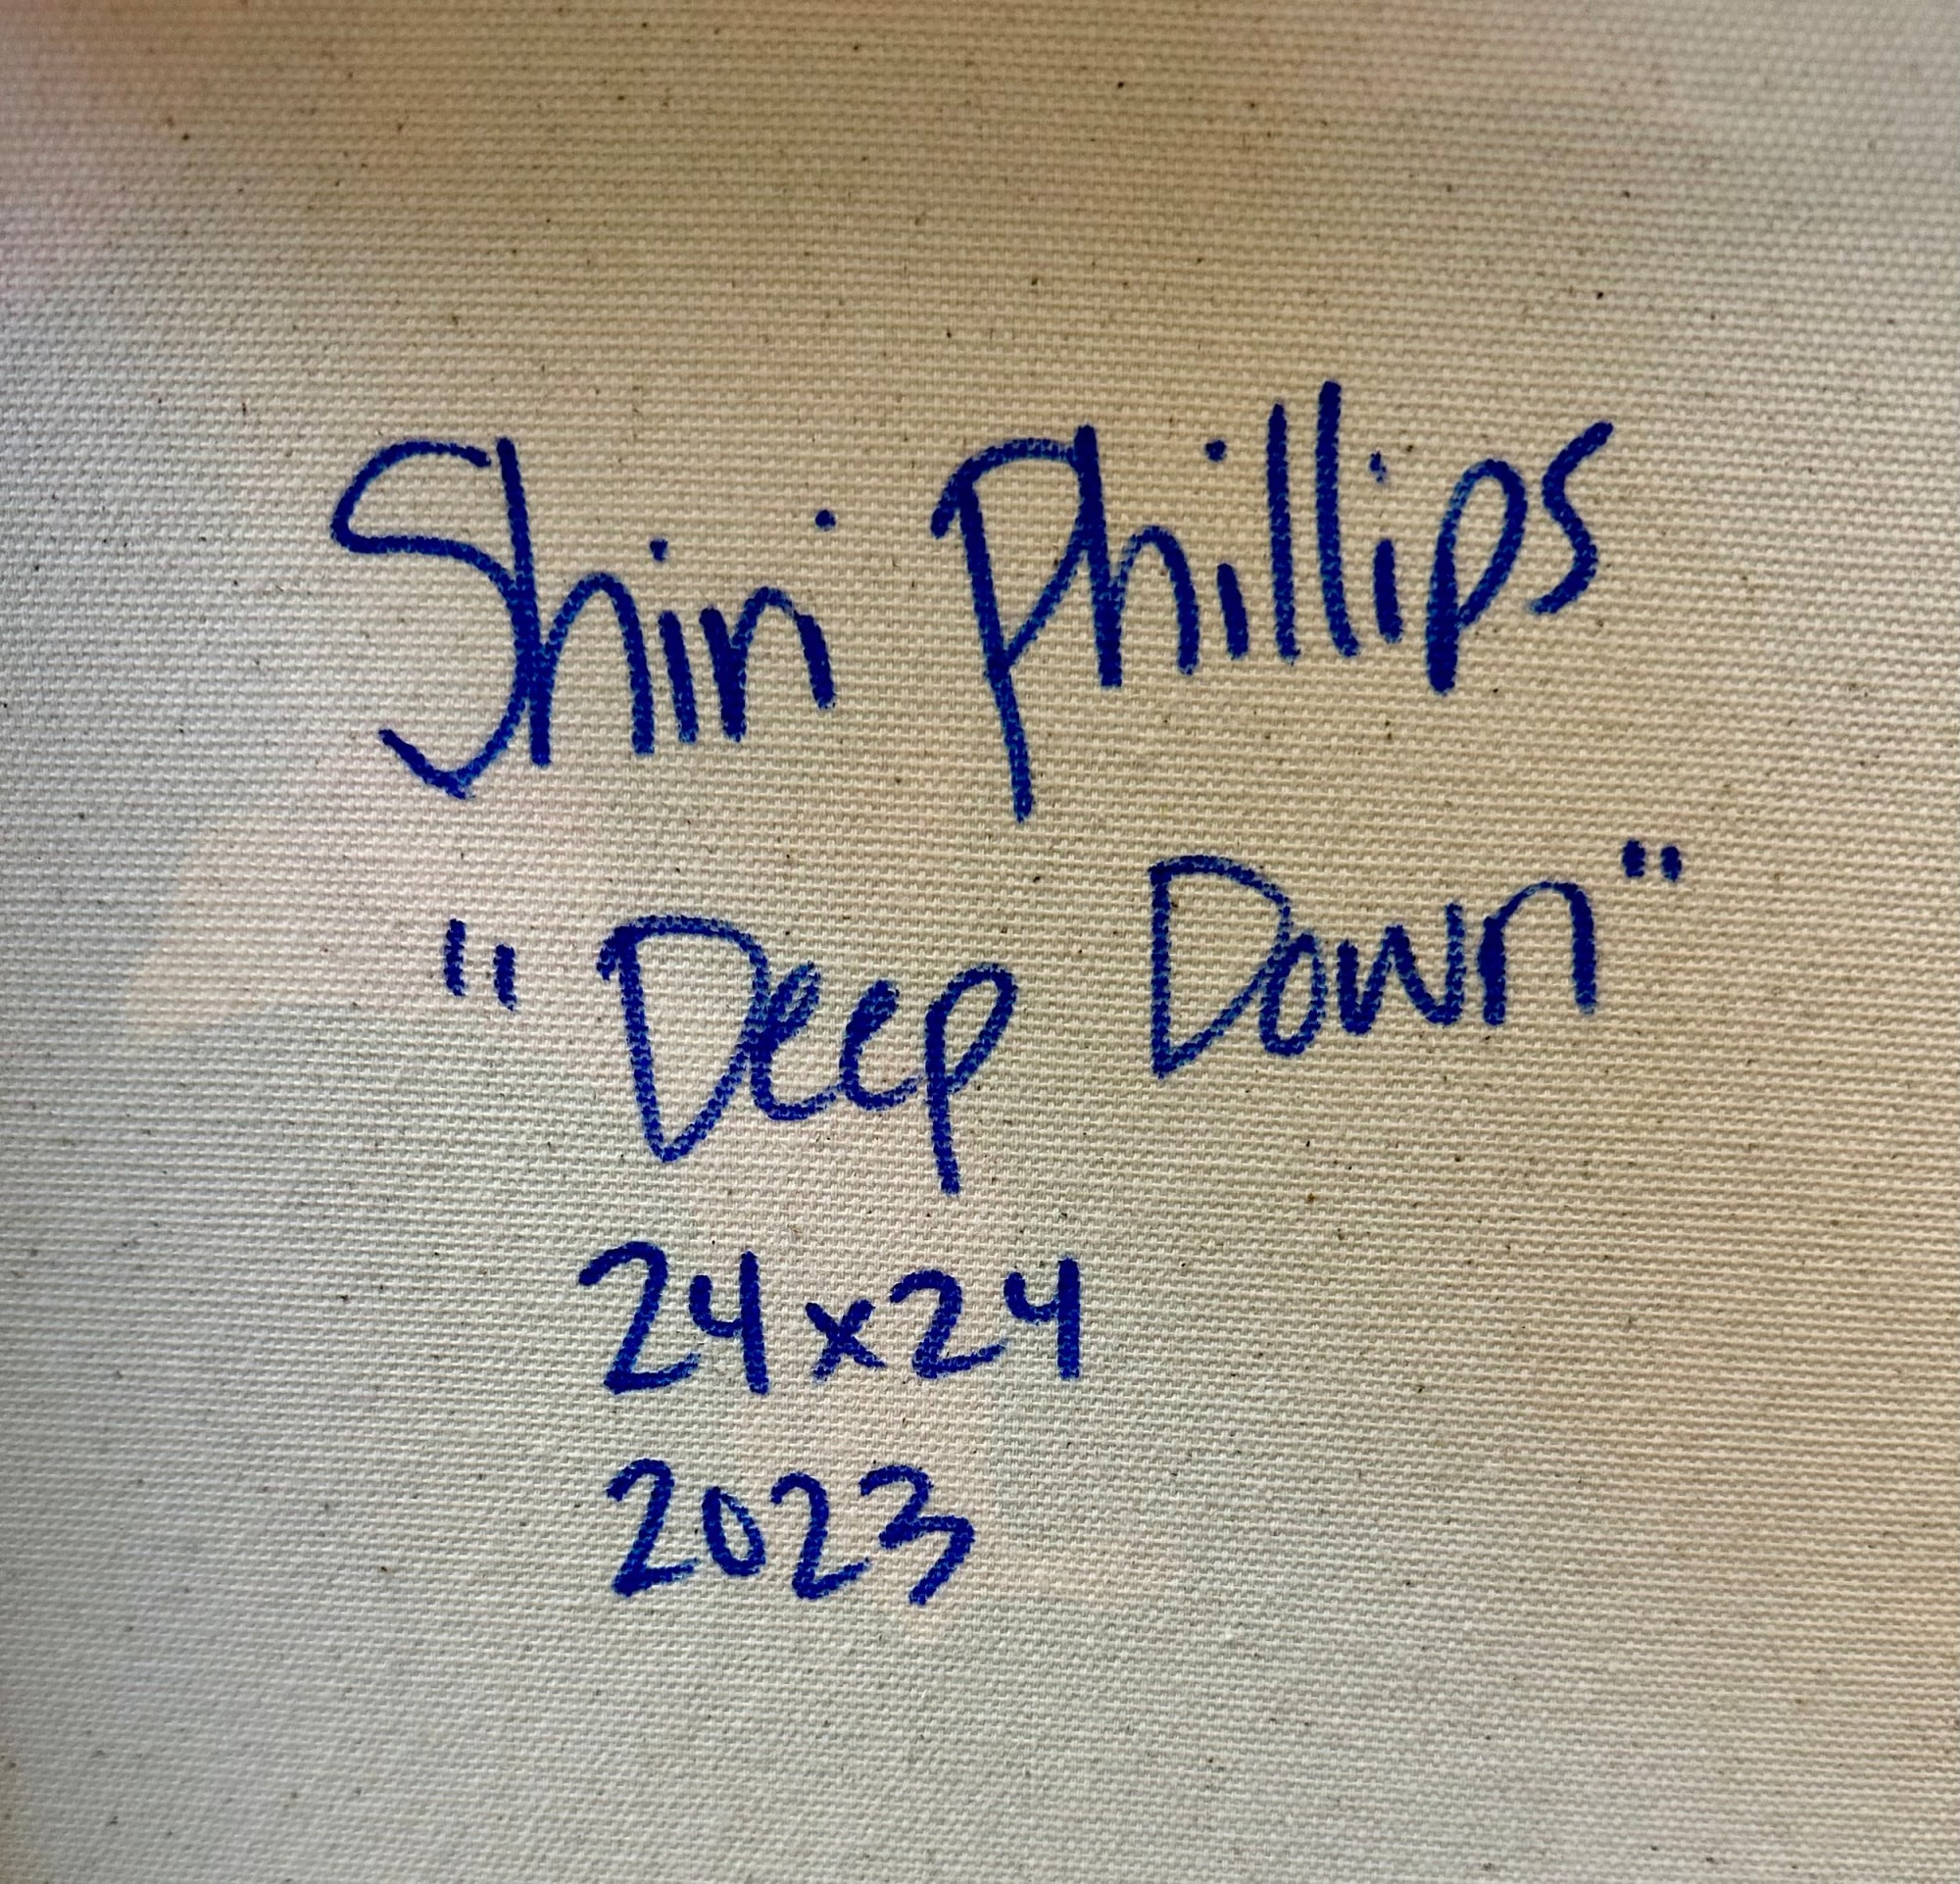 Shiri Phillips
"Deep Down"
24x24
2023